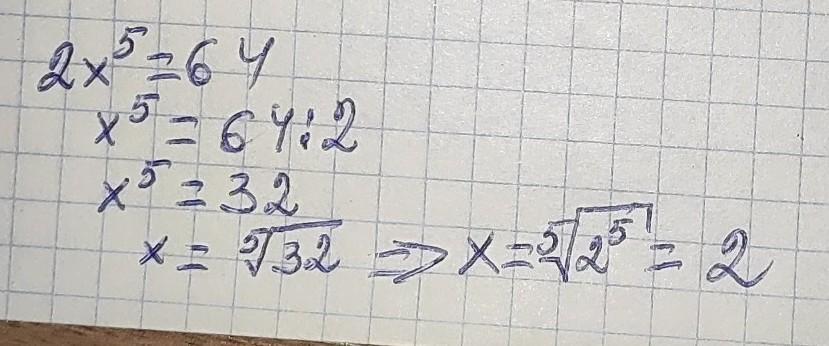 2x⁵=64
x⁵=64:2
x⁵=32
x=⁵√32 ⇒ x=⁵√2⁵=2